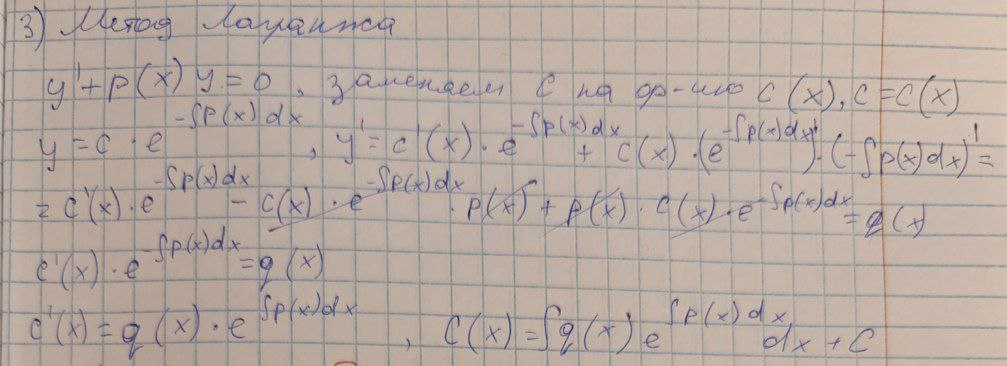 3) Метод Лагранжа
y' + p(x) y = 0, заменяем C на ф-ию C(x), C = C(x)
y = C · e^{-∫p(x)dx}, y' = C'(x) · e^{-∫p(x)dx} + C(x) · (e^{-∫p(x)dx}) · (-∫p(x)dx)' =
= C'(x) · e^{-∫p(x)dx} - C(x) · e^{-∫p(x)dx} · p(x) + p(x) · C(x) · e^{-∫p(x)dx} = q(x)
C'(x) · e^{-∫p(x)dx} = q(x)
C'(x) = q(x) · e^{∫p(x)dx}, C(x) = ∫q(x) e^{∫p(x)dx} dx + C